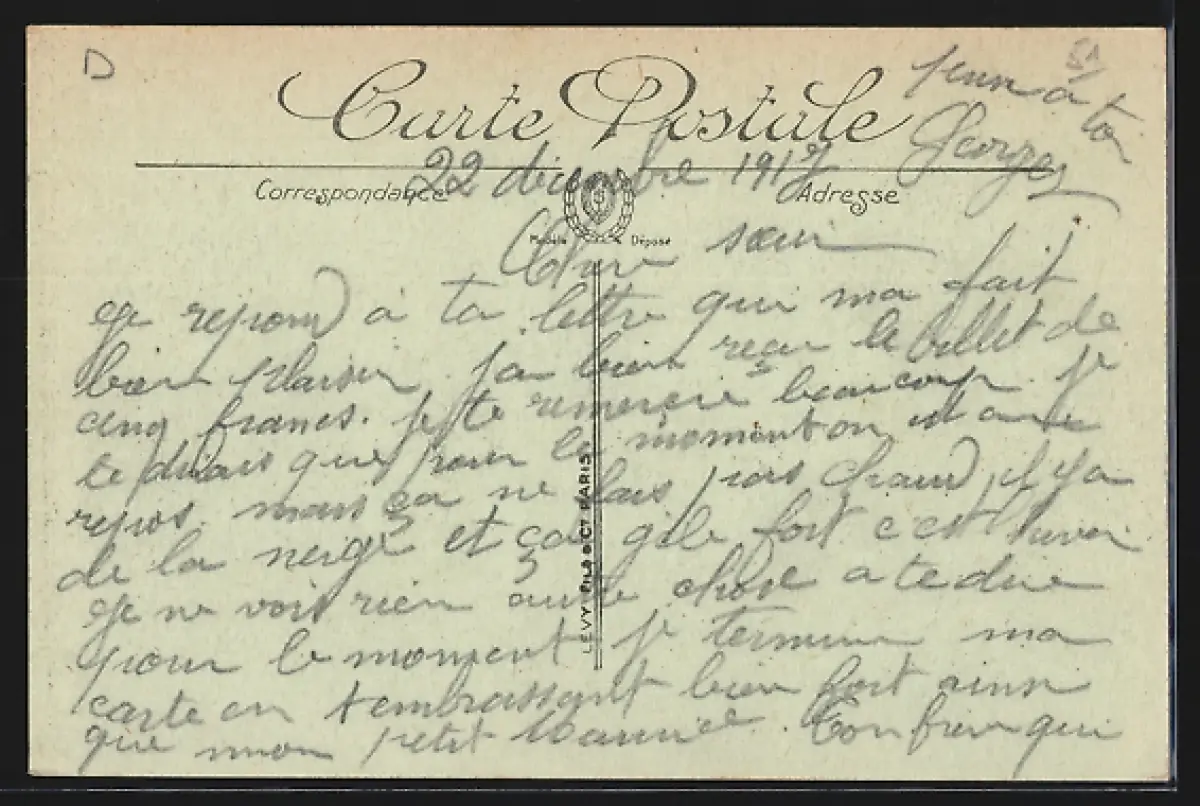 D
51
Carte Postale
Correspondance
Adresse
22 décembre 1917
Modèle Déposé
Chère sœur
Je repond à ta lettre qui ma fait
bien plaisir. J'ai bien reçu le billet de
cinq francs. je te remercie beaucoup. je
te dirais que pour le moment on est au
repos. mais ça ne fais pas chaud, il y a
de la neige et ça gèle fort c est l'hiver
Je ne vois rien autre chose a te dire
pour le moment je termine ma
carte en t embrassant bien fort ainsi
que mon petit Ton frère qui
pense à toi
Georges
LEVY FILS & Cie PARIS